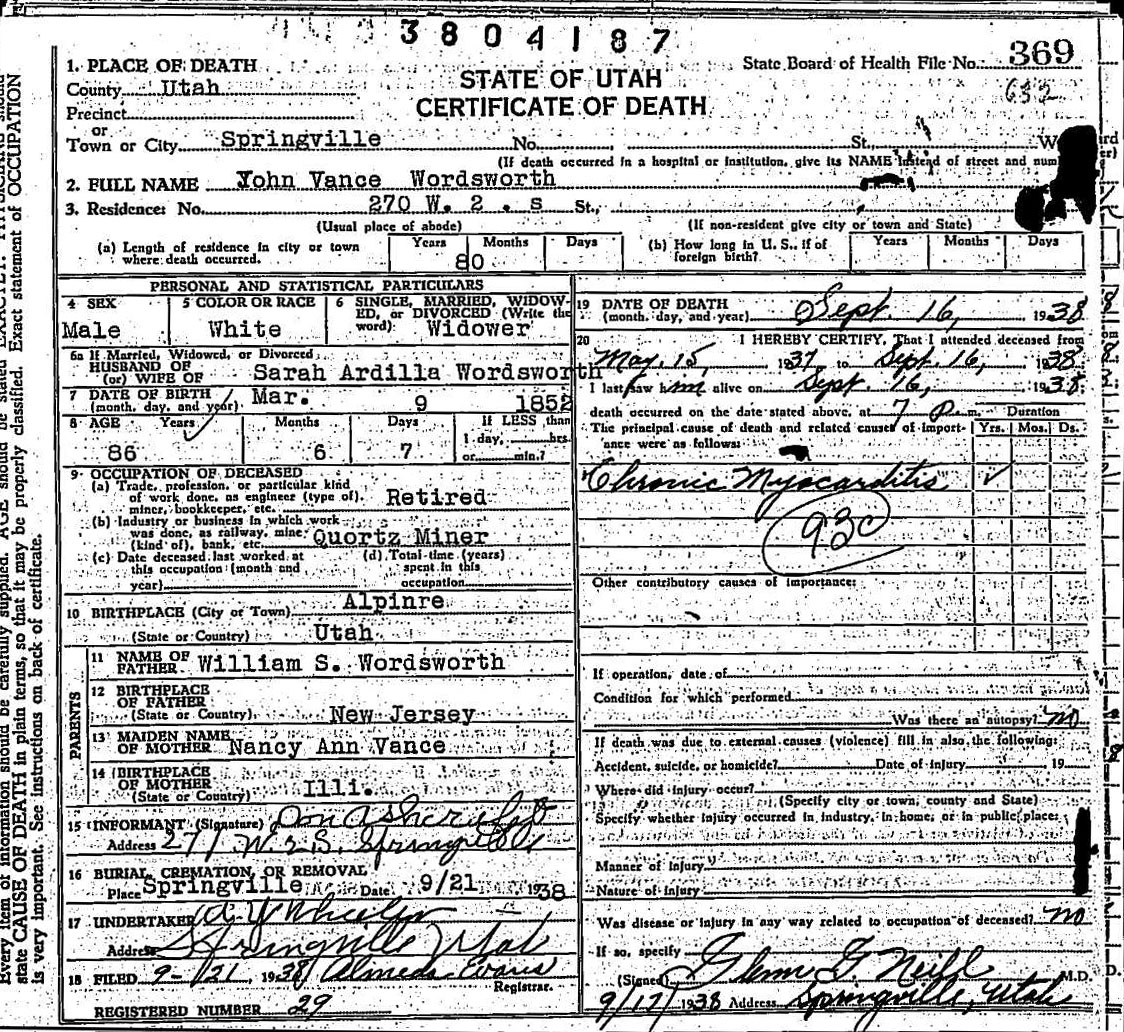 3804187
State Board of Health File No. 369
632
STATE OF UTAH
CERTIFICATE OF DEATH
1. PLACE OF DEATH
County Utah
Precinct
or
Town or City Springville No. St.,
(If death occurred in a hospital or institution, give its NAME instead of street and num
2. FULL NAME John Vance Wordsworth
3. Residence: No. 270 W. 2 . s St.,
(Usual place of abode) (If non-resident give city or town and State)
(a) Length of residence in city or town where death occurred. Years 80 Months Days
(b) How long in U. S., if of foreign birth? Years Months Days
PERSONAL AND STATISTICAL PARTICULARS
4 SEX Male
5 COLOR OR RACE White
6 SINGLE, MARRIED, WIDOW-
ED, or DIVORCED (Write the
word): Widower
6a If Married, Widowed, or Divorced
HUSBAND OF
(or) WIFE OF Sarah Ardilla Wordsworth
7 DATE OF BIRTH
(month, day, and year) Mar. 9 1852
8 AGE Years Months Days If LESS than
1 day, hrs.
86 6 7 or min.?
9 OCCUPATION OF DECEASED
(a) Trade, profession, or particular kind
of work done, as engineer (type of),
miner, bookkeeper, etc. Retired
(b) Industry or business in which work
was done, as railway, mine
(kind of), bank, etc. Quortz Miner
(c) Date deceased last worked at
this occupation (month and
year)
(d) Total time (years)
spent in this
occupation
10 BIRTHPLACE (City or Town) Alpinre
(State or Country) Utah
PARENTS
11 NAME OF
FATHER William S. Wordsworth
12 BIRTHPLACE
OF FATHER
(State or Country) New Jersey
13 MAIDEN NAME
OF MOTHER Nancy Ann Vance
14 BIRTHPLACE
OF MOTHER
(State or Country) Illi.
15 INFORMANT (Signature) Don A
Address 271 W. 2 S. Springville
16 BURIAL, CREMATION, OR REMOVAL
Place Springville Date 9/21 1938
17 UNDERTAKER A Y Wheeler
Address Springville Utah
18 FILED 9-21, 1938 Almeda Evans
Registrar.
REGISTERED NUMBER 29
19 DATE OF DEATH
(month, day, and year) Sept. 16, 1938
20 I HEREBY CERTIFY, That I attended deceased from
May. 15, 1937 to Sept. 16, 1938
I last saw him alive on Sept. 16, 1938
death occurred on the date stated above, at 7 P. m. Duration
The principal cause of death and related causes of import-
ance were as follows: Yrs. Mos. Ds.
Chronic Myocarditis ✓
93c
Other contributory causes of importance:
If operation, date of
Condition for which performed
Was there an autopsy? no
If death was due to external causes (violence) fill in also the following:
Accident, suicide, or homicide? Date of injury 19
Where did injury occur?
(Specify city or town, county and State)
Specify whether injury occurred in industry, in home, or in public place:
Manner of injury
Nature of injury
Was disease or injury in any way related to occupation of deceased? no
If so, specify
(Signed) Glenn G. Neill M.D.
9/17 1938 Address Springville, Utah
state CAUSE OF DEATH in plain terms, so that it may be properly classified. Exact statement of OCCUPATION
is very important. See instructions on back of certificate.